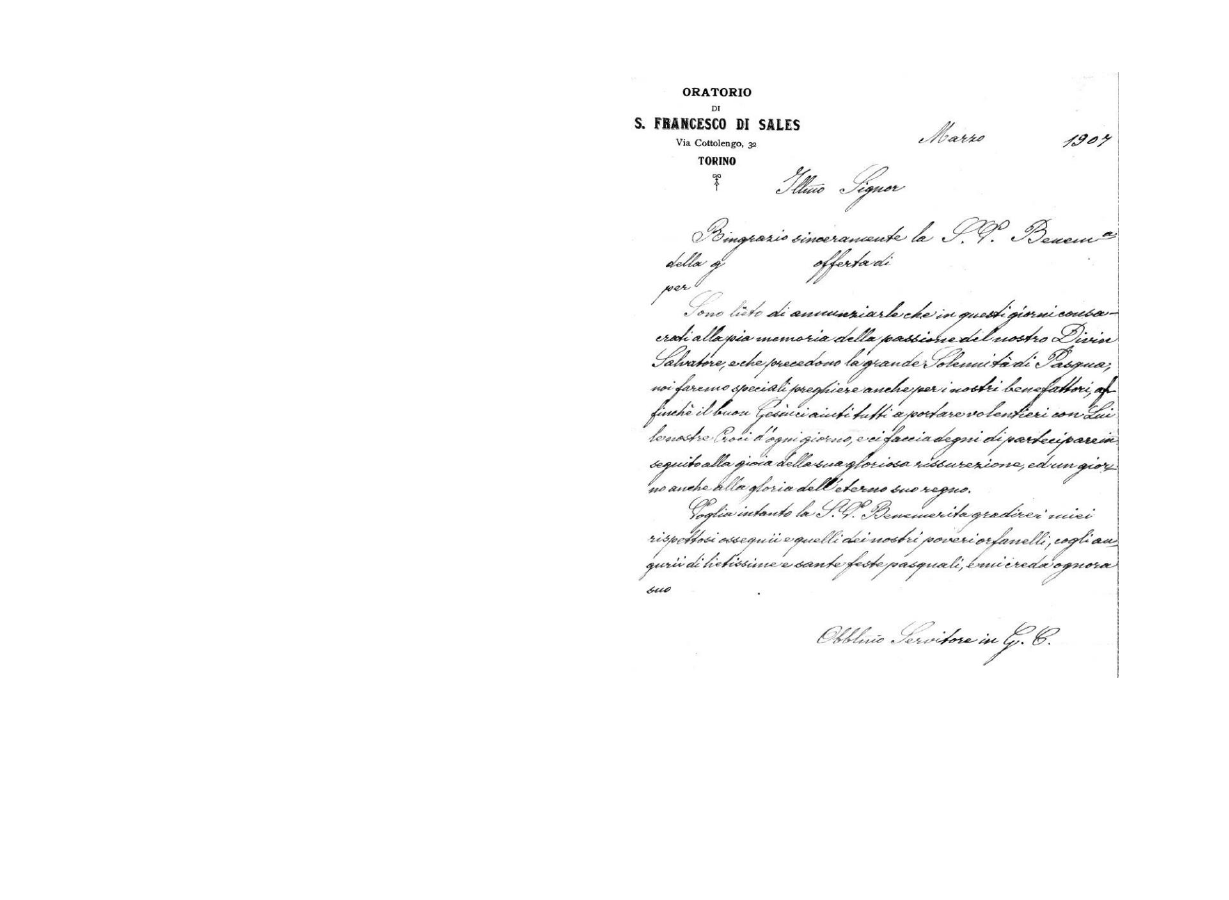 ORATORIO
DI
S. FRANCESCO DI SALES
Via Cottolengo, 32
TORINO
Marzo 1907
Illmo Signor
Ringrazio sinceramente la S. V. Benemᵃ
della g offerta di
per
Sono lieto di annunziarle che in questi giorni consa-
crati alla pia memoria della passione del nostro Divin
Salvatore, e che precedono la grande Solennità di Pasqua,
noi faremo speciali preghiere anche per i nostri benefattori, af
finchè il buon Gesù ci aiuti tutti a portare volentieri con Lui
le nostre Croci d'ogni giorno, e ci faccia degni di partecipare in
seguito alla gioia della sua gloriosa rissurezione, ed un gior-
no anche alla gloria dell'eterno suo regno.
Voglia intanto la S. V. Benemerita gradire i miei
rispettosi ossequii e quelli dei nostri poveri orfanelli, cogli au-
gurii di lietissime e sante feste pasquali, e mi creda ognora
suo
Obblmo Servitore in G. C.